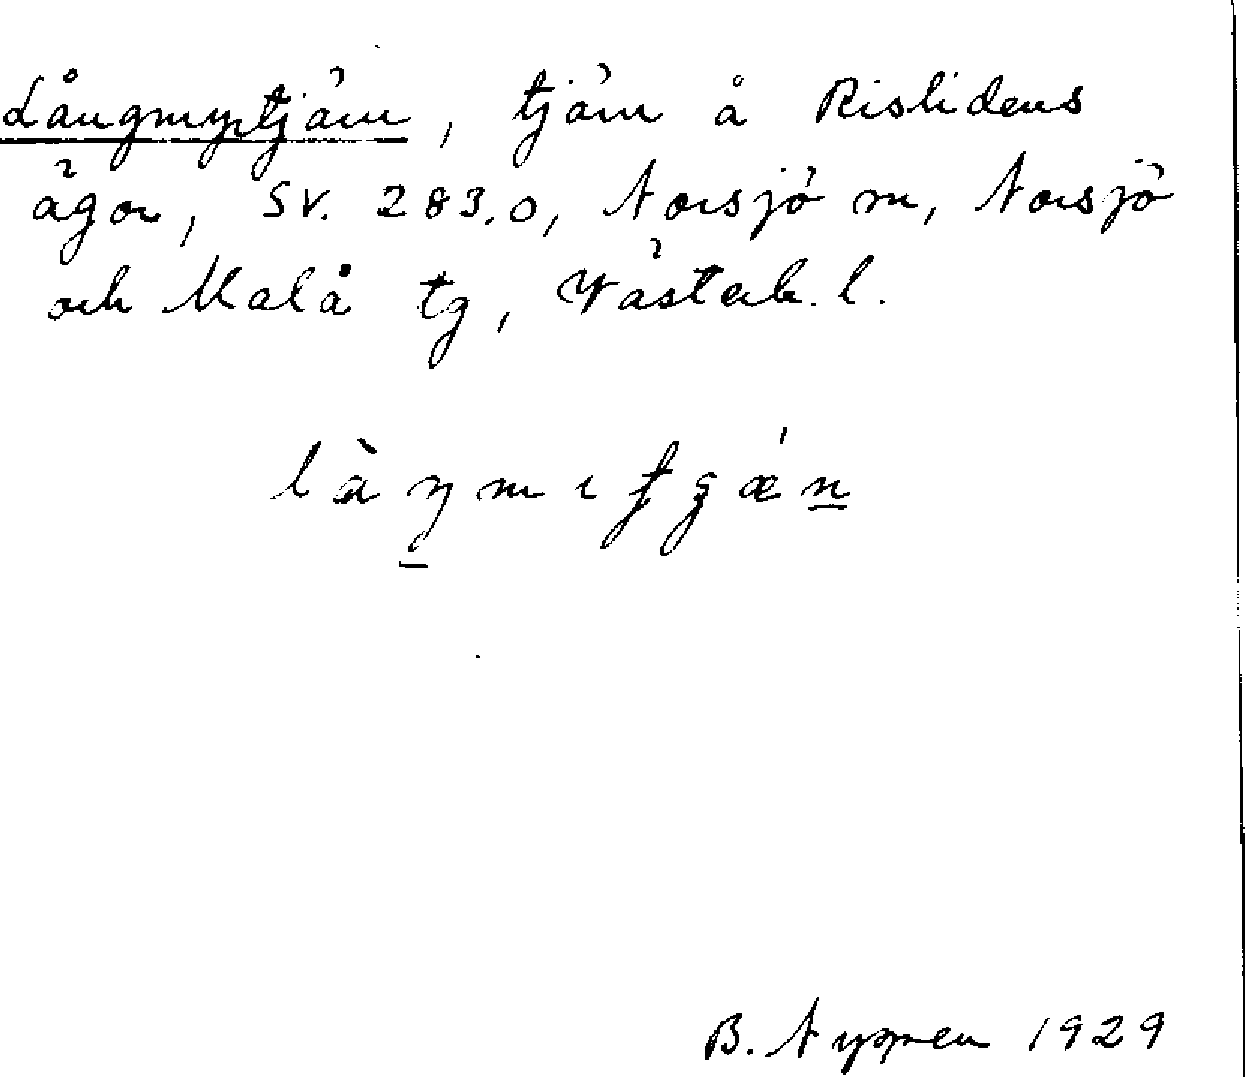 Långmyrtjärn, tjärn å Rislidens
ägor, Sv. 283.0, Norsjö sn, Norsjö
och Malå tg, Västerb. l.
B. Nygren 1929